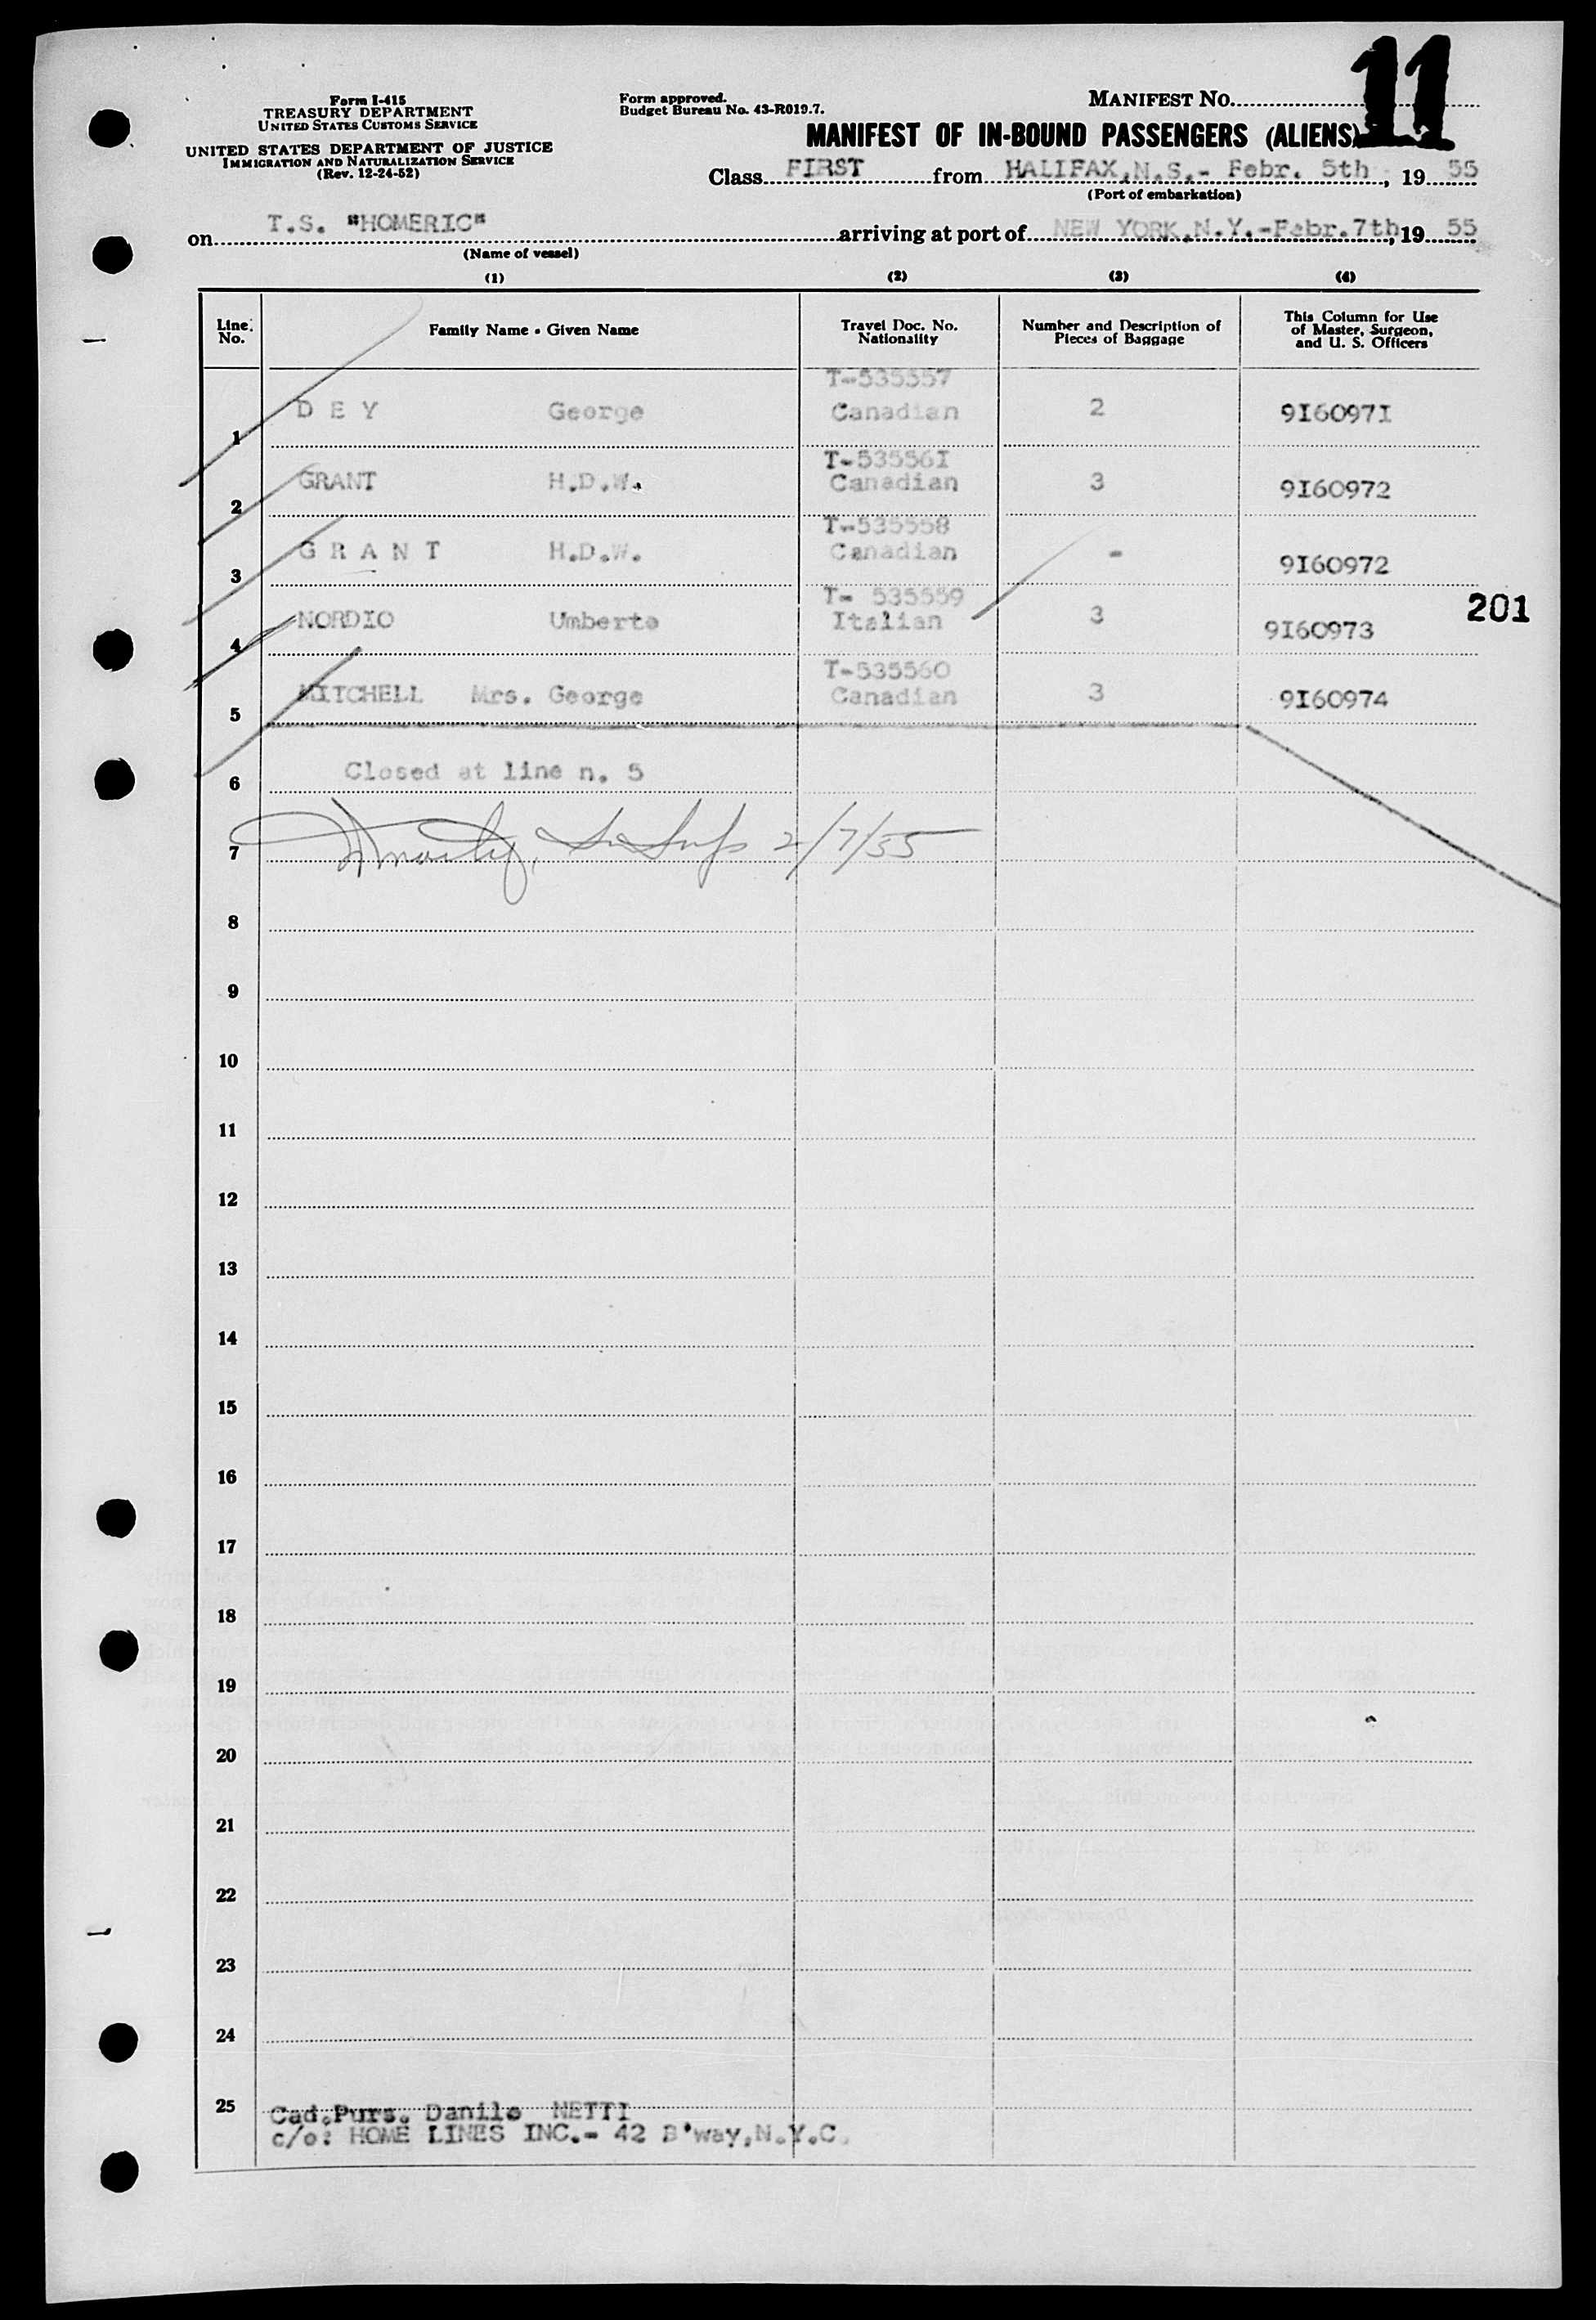 11
Form I-415
TREASURY DEPARTMENT
UNITED STATES CUSTOMS SERVICE
UNITED STATES DEPARTMENT OF JUSTICE
IMMIGRATION AND NATURALIZATION SERVICE
(Rev. 12-24-52)
Form approved.
Budget Bureau No. 43-R019.7.
MANIFEST NO.
MANIFEST OF IN-BOUND PASSENGERS (ALIENS)
Class FIRST from HALIFAX,N.S.- Febr. 5th, 19 55
(Port of embarkation)
on T.S. "HOMERIC" arriving at port of NEW YORK,N.Y.-Febr.7th, 19 55
(Name of vessel)
(1) (2) (3) (4)
Line No. Family Name - Given Name Travel Doc. No. Nationality Number and Description of Pieces of Baggage This Column for Use of Master, Surgeon, and U. S. Officers
T-535557
1 D E Y George Canadian 2 9I6097I
T-53556I
2 GRANT H.D.W. Canadian 3 9I60972
T-535558
3 G R A N T H.D.W. Canadian - 9I60972
T- 535559
4 NORDIO Umberto Italian 3 9I60973
201
T-535560
5 MITCHELL Mrs. George Canadian 3 9I60974
6 Closed at line n. 5
7 2/7/55
8
9
10
11
12
13
14
15
16
17
18
19
20
21
22
23
24
25 Cad.Purs. Danilo NETTI
c/o: HOME LINES INC.- 42 B'way,N.Y.C.